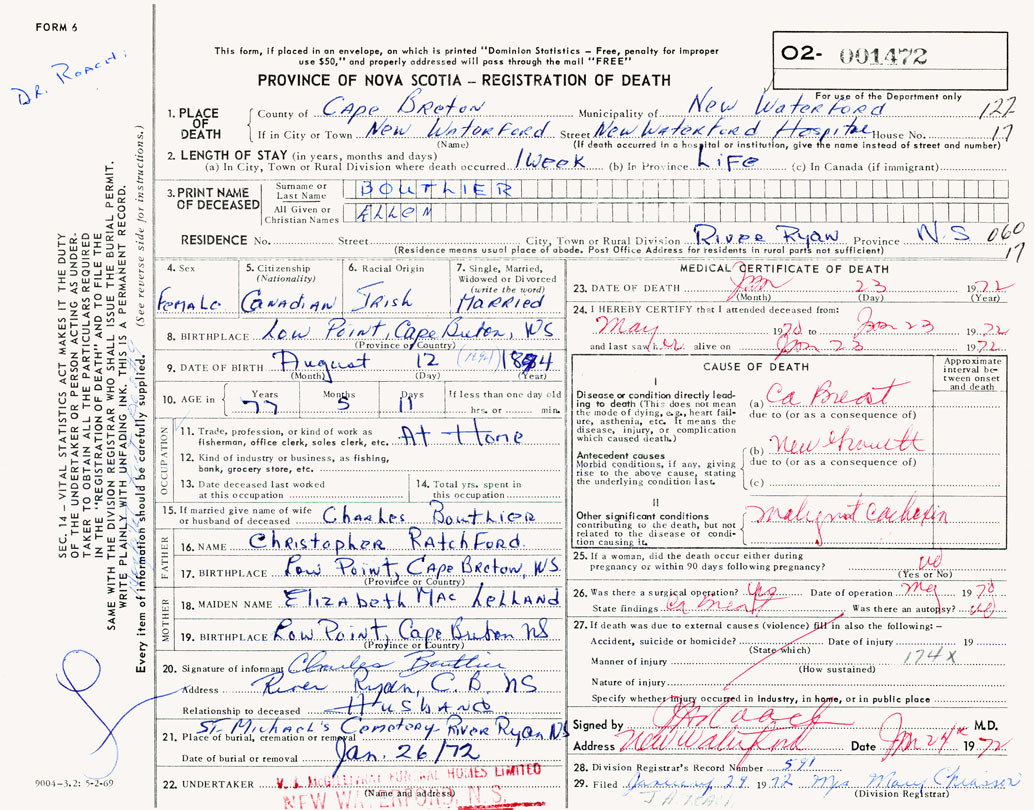 FORM 6
DR. ROACH.
This form, if placed in an envelope, on which is printed "Dominion Statistics – Free, penalty for improper
use $50," and properly addressed will pass through the mail "FREE"
PROVINCE OF NOVA SCOTIA – REGISTRATION OF DEATH
02- 001472
For use of the Department only
122
17
1. PLACE OF DEATH
County of Cape Breton Municipality of New Waterford
If in City or Town New Waterford Street New Waterford Hospital House No.
(Name) (If death occurred in a hospital or institution, give the name instead of street and number)
2. LENGTH OF STAY (in years, months and days)
(a) In City, Town or Rural Division where death occurred 1 week (b) In Province Life (c) In Canada (if immigrant)
3. PRINT NAME OF DECEASED
Surname or Last Name BOUTHIER
All Given or Christian Names ELLEN
RESIDENCE No. Street City, Town or Rural Division River Ryan Province N.S 060
(Residence means usual place of abode. Post Office Address for residents in rural parts not sufficient) 17
4. Sex Female
5. Citizenship (Nationality) Canadian
6. Racial Origin Irish
7. Single, Married, Widowed or Divorced (write the word) Married
8. BIRTHPLACE Low Point, Cape Breton, NS
(Province or Country)
9. DATE OF BIRTH August 12 1894
(Month) (Day) (Year)
10. AGE in Years 77 Months 5 Days 11 If less than one day old hrs. or min.
OCCUPATION
11. Trade, profession, or kind of work as
fisherman, office clerk, sales clerk, etc. At Home
12. Kind of industry or business, as fishing,
bank, grocery store, etc.
13. Date deceased last worked
at this occupation
14. Total yrs. spent in
this occupation
15. If married give name of wife
or husband of deceased Charles Bouthier
FATHER
16. NAME Christopher Ratchford
17. BIRTHPLACE Low Point, Cape Breton, NS
(Province or Country)
MOTHER
18. MAIDEN NAME Elizabeth Mac Lelland
19. BIRTHPLACE Low Point, Cape Breton NS
(Province or Country)
20. Signature of informant Charles Bouthier
Address River Ryan, C.B. NS
Relationship to deceased HUSBAND
St. Michael's Cemetery River Ryan NS
21. Place of burial, cremation or removal
Date of burial or removal Jan. 26/72
22. UNDERTAKER V. J. McGILLIVRAY FUNERAL HOMES LIMITED
(Name and address)
NEW WATERFORD, N.S.
MEDICAL CERTIFICATE OF DEATH
23. DATE OF DEATH Jan 23 1972
(Month) (Day) (Year)
24. I HEREBY CERTIFY that I attended deceased from:
May 1970 to Jan 23 1972
and last saw her alive on Jan 23 1972
CAUSE OF DEATH
Approximate interval between onset and death
I
Disease or condition directly leading
to death (This does not mean
the mode of dying, e.g., heart failure,
asthenia, etc. It means the
disease, injury, or complication
which caused death.)
(a) Ca Breast
due to (or as a consequence of)
Antecedent causes
Morbid conditions, if any, giving
rise to the above cause, stating
the underlying condition last.
(b) New Growth
due to (or as a consequence of)
(c)
II
Other significant conditions
contributing to the death, but not
related to the disease or condition
causing it.
Malignant Cachexia
25. If a woman, did the death occur either during
pregnancy or within 90 days following pregnancy? no
(Yes or No)
26. Was there a surgical operation? Yes Date of operation May 1970
State findings Ca Breast Was there an autopsy? no
27. If death was due to external causes (violence) fill in also the following: –
Accident, suicide or homicide? Date of injury 19
(State which)
Manner of injury 174X
(How sustained)
Nature of injury
Specify whether injury occurred in Industry, in home, or in public place
Signed by Roach M.D.
Address New Waterford Date Jan 24th 1972
28. Division Registrar's Record Number 591
29. Filed January 29 1972 Mrs Mary
(Division Registrar)
SEC. 14 – VITAL STATISTICS ACT MAKES IT THE DUTY
OF THE UNDERTAKER OR PERSON ACTING AS UNDERTAKER
TO OBTAIN ALL THE PARTICULARS REQUIRED
IN THE "REGISTRATION OF DEATH" AND TO FILE THE
SAME WITH THE DIVISION REGISTRAR WHO SHALL ISSUE THE BURIAL PERMIT.
WRITE PLAINLY WITH UNFADING INK. THIS IS A PERMANENT RECORD.
Every item of information should be carefully supplied. (See reverse side for instructions.)
9004-3.2: 5-2-69